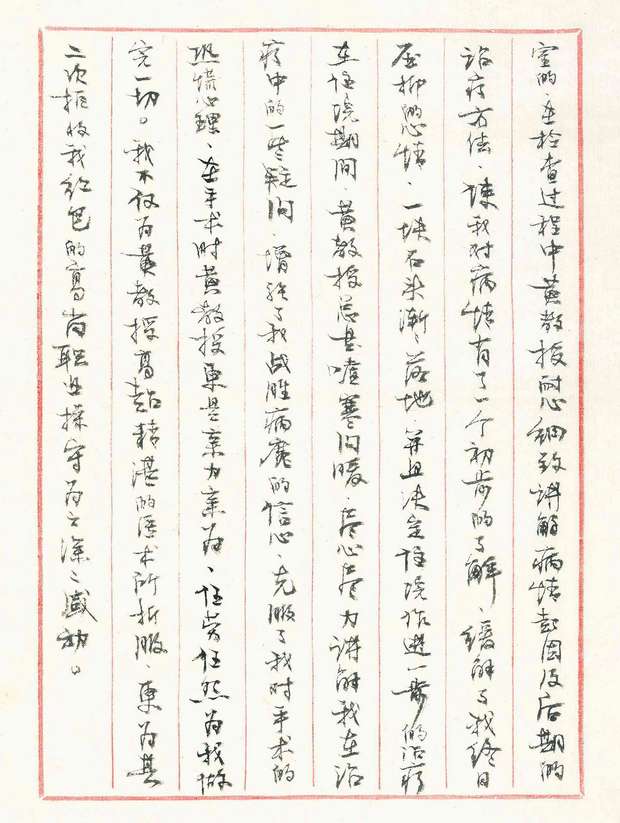 室的，在检查过程中黄教授耐心细致讲解病情起因及后期的
治疗方法，使我对病情有了一个初步的了解，缓解了我终日
压抑的心情，一块石头渐渐落地，并且决定住院作进一步的治疗
在住院期间，黄教授总是嘘寒问暖，尽心尽力讲解我在治
疗中的一些疑问，增强了我战胜病魔的信心，克服了我对手术的
恐慌心理，在手术时黄教授更是亲力亲为，任劳任怨为我做
完一切。我不仅为黄教授高超精湛的医术所折服，更为其
二次拒收我红包的高尚职业操守为之深之感动。